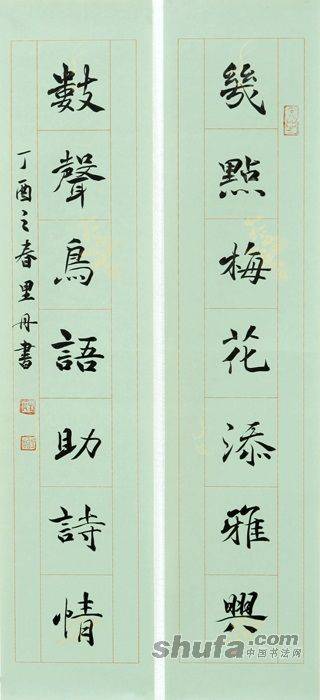 幾點梅花添雅興
數聲鳥語助詩情
丁酉之春里丹書
shufa.com
中国书法网